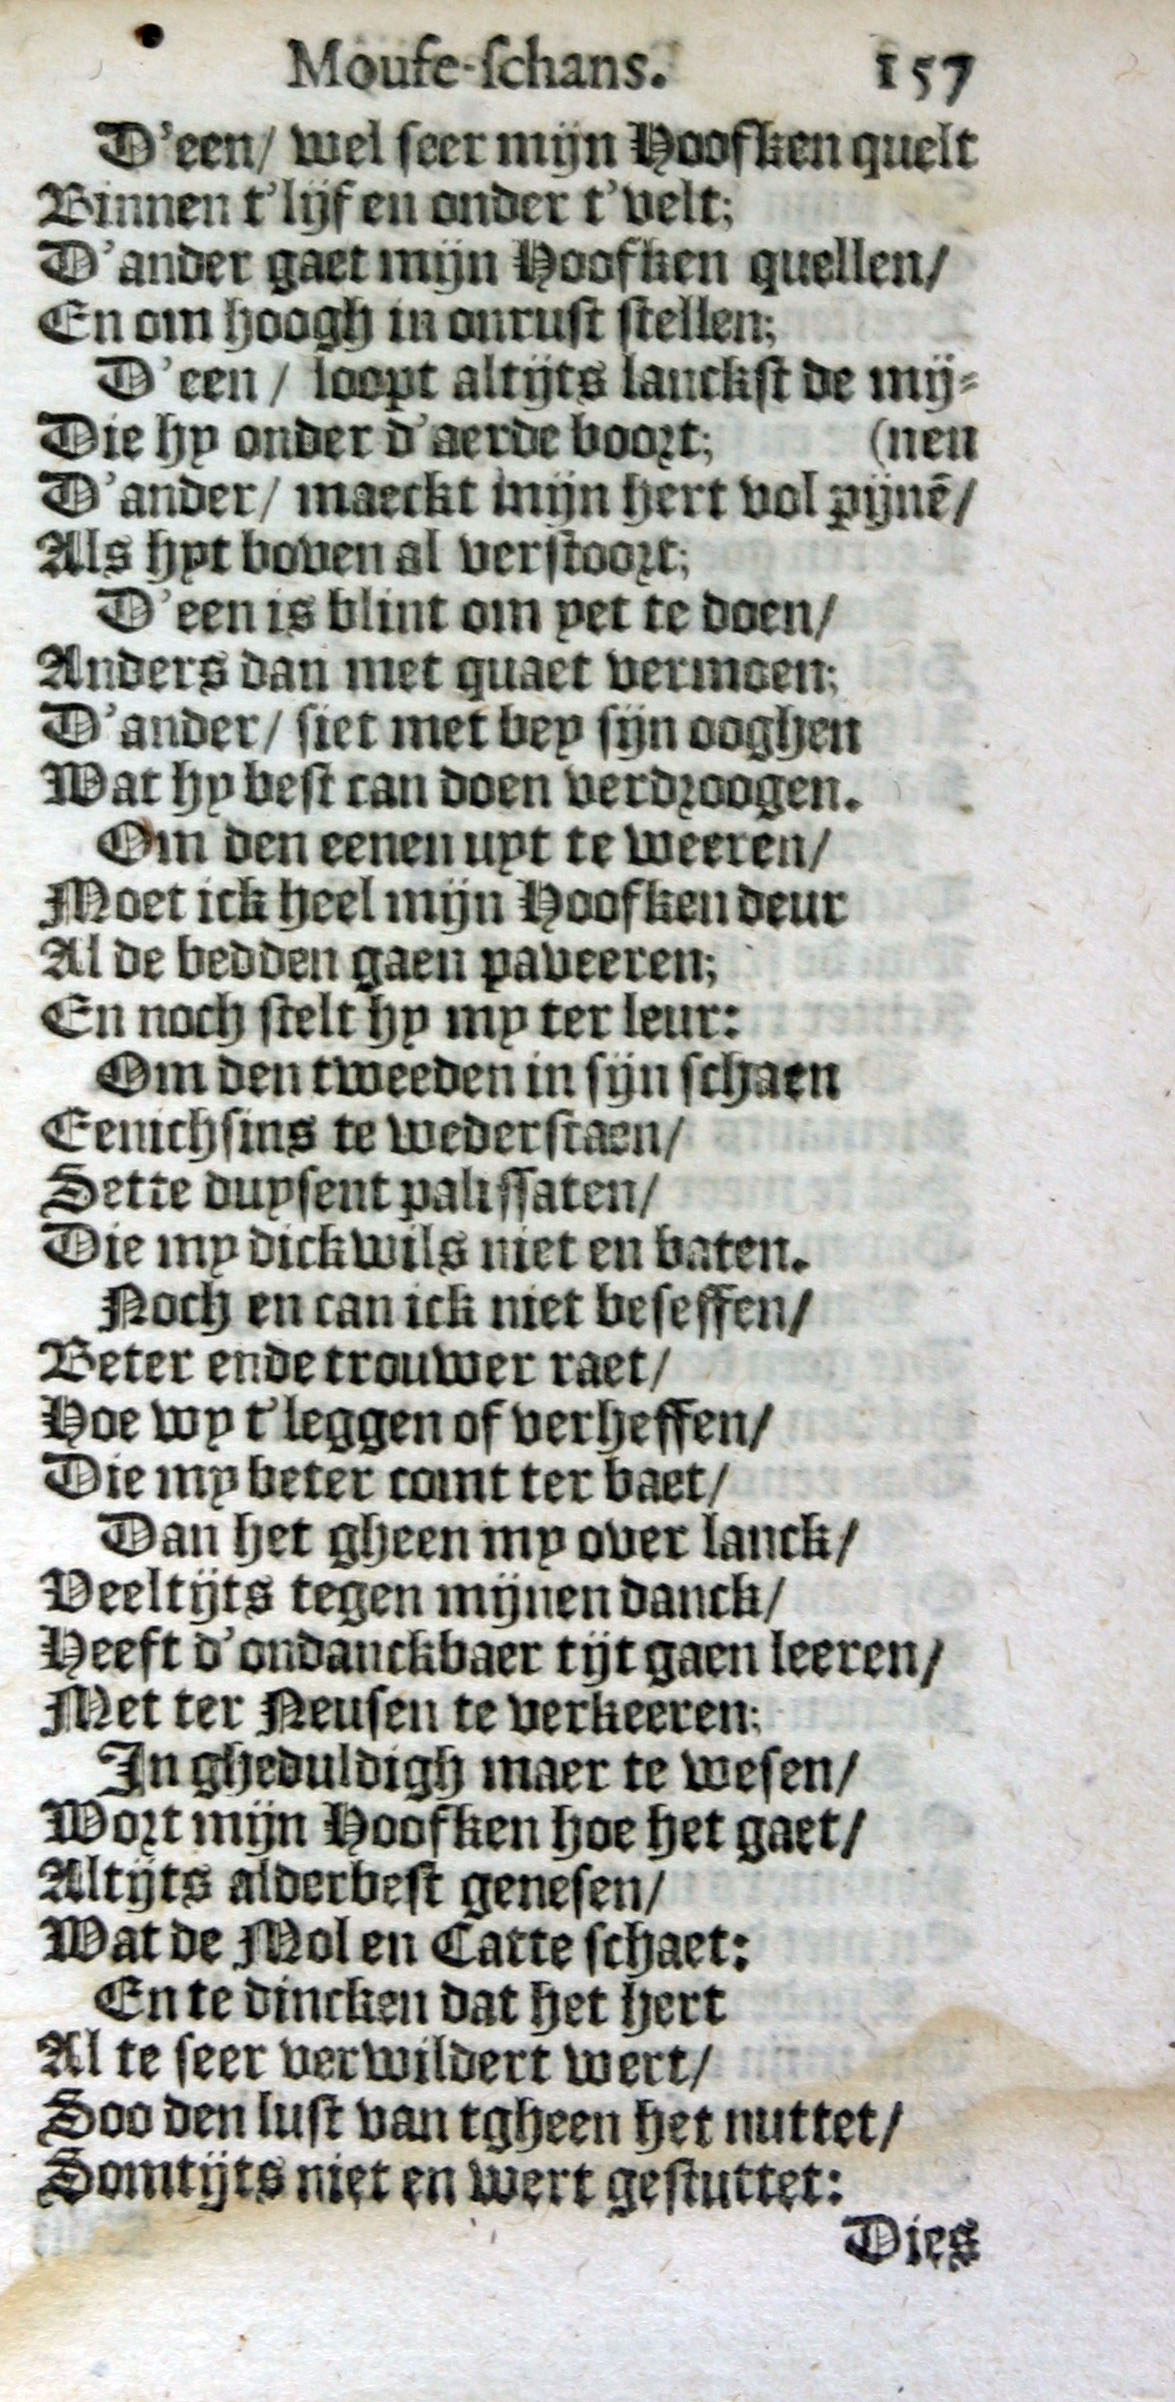 Mouse-schans. 157
D'een/ wel seer mijn Hoofken quelt
Binnen t'lijf en onder t'velt;
D'ander gaet mijn Hoofken quellen/
En om hoogh in onrust stellen;
D'een / loopt altijts lanckst de mij-
Die hy onder d'aerde boort; (nen
D'ander/ maeckt mijn hert vol pijnē/
Als hyt boven al verstoort;
D'een is blint om yet te doen/
Anders dan met quaet vermoen;
D'ander/ siet met bey sijn ooghen
Wat hy best can doen verdroogen.
Om den eenen uyt te weeren/
Moet ick heel mijn Hoofken deur
Al de bedden gaen paveeren;
En noch stelt hy my ter leur:
Om den tweeden in sijn schaen
Eenichsins te wederstaen/
Sette duysent palissaten/
Die my dickwils niet en baten.
Noch en can ick niet beseffen/
Beter ende trouwer raet/
Hoe wy t'leggen of verheffen/
Die my beter comt ter baet/
Dan het gheen my over lanck/
Veeltijts tegen mijnen danck/
Heeft d'ondanckbaer tijt gaen leeren/
Met ter Neusen te verkeeren:
In gheduldigh maer te wesen/
Wort mijn Hoofken hoe het gaet/
Altijts alderbest genesen/
Wat de Mol en Catte schaet:
En te dincken dat het hert
Al te seer verwildert wert/
Soo den lust van tgheen het nuttet/
Somtijts niet en wert gestuttet:
Dies